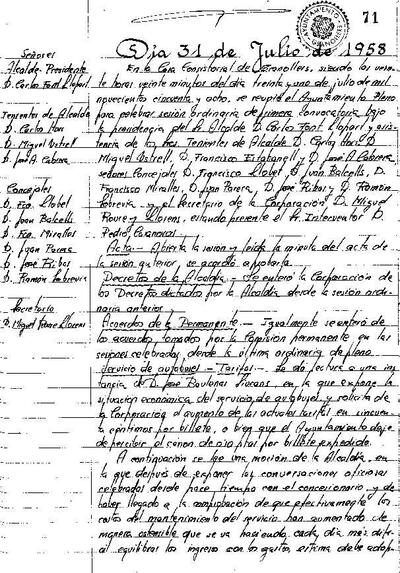 71
AYUNTAMIENTO
Día 31 de Julio de 1958
Señores
Alcalde-Presidente
D. Carlos Font Llopart
Tenientes de Alcalde
D. Carlos
D. Miguel
D. José A. Cabrera
Concejales
D. Fco. Llobet
D. Juan Balcells
D. Fco. Miralles
D. Juan Parera
D. José Ribas
D. Ramón
Secretario
D. Miguel Llorens
En la Casa Consistorial de Granollers, siendo las
horas veinte minutos del día treinta y uno de julio de mil
novecientos cincuenta y ocho, se reunió el Ayuntamiento Pleno
para celebrar sesión ordinaria de primera convocatoria bajo
la presidencia del Sr. Alcalde D. Carlos Font Llopart y asis-
tencia de los Tenientes de Alcalde D. Carlos D.
Miguel D. Francisco Estabanell y D. José A. Cabrera,
señores Concejales D. Francisco Llobet D. Juan Balcells, D.
Francisco Miralles, D. Juan Parera, D. José Ribas y D. Ramón
y el Secretario de la Corporación D. Miguel
y Llorens, estando presente el Sr. Interventor D.
Pedro
Acta - Abierta la sesión y leída la minuta del acta de
la sesión anterior, se acordó aprobarla.
Decretos de la Alcaldía - Se enteró la Corporación de
los Decretos dictados por la Alcaldía desde la sesión ordi-
naria anterior
Acuerdos de la Permanente - Igualmente se enteró de
los acuerdos tomados por la Comisión permanente en las
sesiones celebradas desde la última ordinaria de pleno
Servicio de autobuses - Tarifas - Se da lectura a una ins-
tancia de D. José en la que expone la
situación económica del servicio de autobuses y solicita de
la Corporación el aumento de las actuales tarifas en cincuen-
ta céntimos por billete, o bien que el Ayuntamiento deje
de percibir el canon de por billete expedido.
A continuación se lee una moción de la Alcaldía, en
la que después de exponer las conversaciones oficiosas
celebradas desde hace tiempo con el concesionario y de
haber llegado a la comprobación de que efectivamente los
costes del mantenimiento del servicio han aumentado de
manera ostensible que se va haciendo cada día más difí-
cil equilibrar los ingresos con los gastos, estima debe adop-